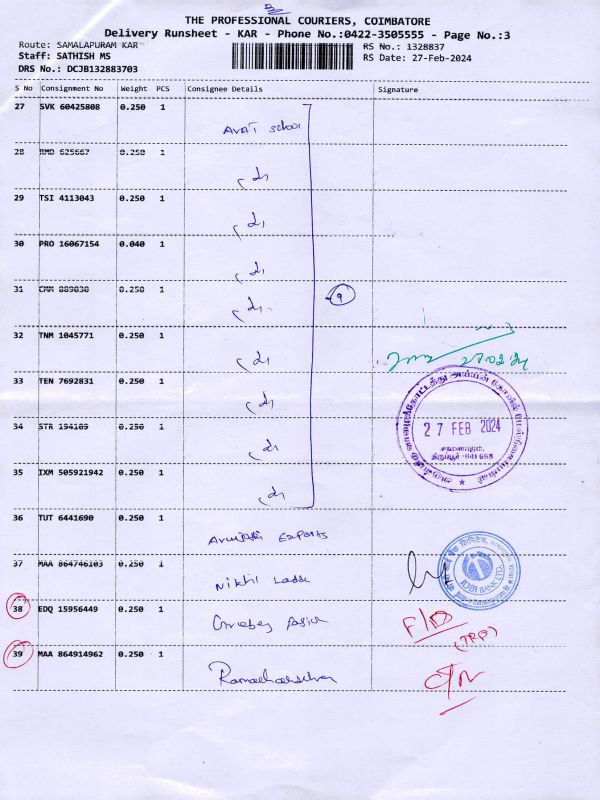 THE PROFESSIONAL COURIERS, COIMBATORE
Delivery Runsheet - KAR - Phone No.:0422-3505555 - Page No.:3
Route: SAMALAPURAM KAR
Staff: SATHISH MS
DRS No.: DCJB132883703
RS No.: 1328837
RS Date: 27-Feb-2024
S No Consignment No Weight PCS Consignee Details Signature
27 SVK 60425808 0.250 1
AVAT School
28 RMD 625667 0.250 1
29 TSI 4113043 0.250 1
30 PRO 16067154 0.040 1
31 CMM 889030 0.250 1
9
32 TNM 1045771 0.250 1
27.02.24
33 TEN 7692831 0.250 1
27 FEB 2024
34 STR 194109 0.250 1
சாமளாபுரம்,
திருப்பூர் -641 663
35 IXM 505921942 0.250 1
36 TUT 6441690 0.250 1
Exports
37 MAA 864746103 0.250 1
IDBI BANK LTD.
Nikhil
38 EDQ 15956449 0.250 1
F/D
(TRP)
39 MAA 864914962 0.250 1